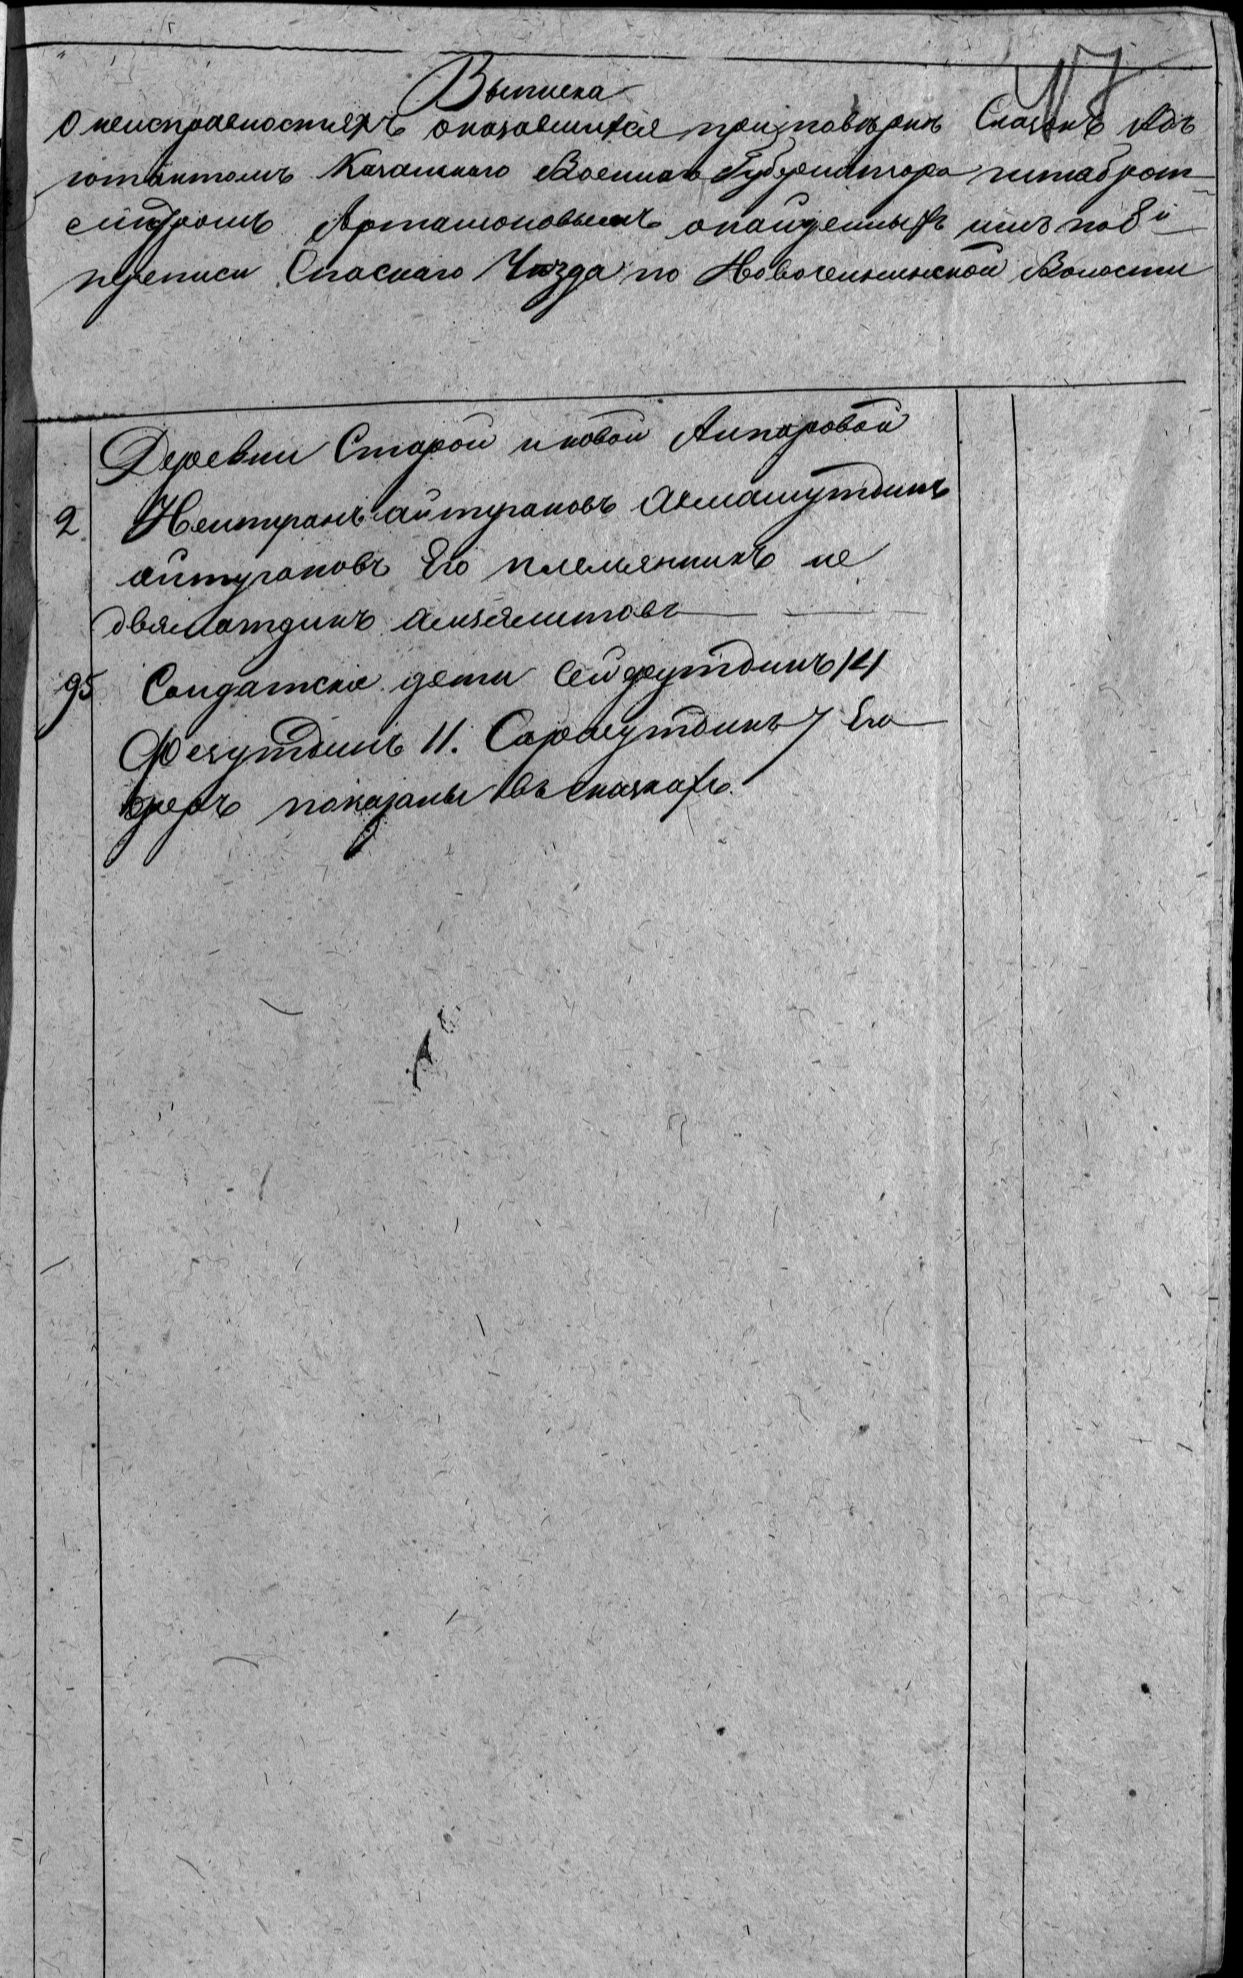 Выписка
О неисправностяхъ оказавшихся при поверкѣ Сказокъ Адъ
ютантомъ Казанскаго Военнаго Губернатора штабсрот
мистромъ Артамоновымъ о найденныхъ имъ по 8й
переписи Спаскаго Уѣзда по Новоченылинской Волости
Деревни Старой и новой Амзаровой
2 айтугановъ
айтугановъ Его племянникъ не
95 Солдатски дети Сейфутдинъ 14
Фехутдинъ 11. Сарахутдинъ 7 Его
показаны въ сказкахъ.